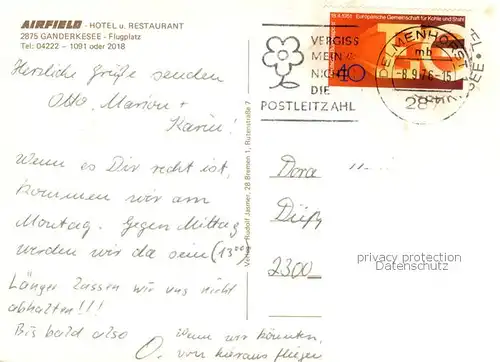 AIRFIELD - HOTEL u. RESTAURANT
2875 GANDERKESEE - Flugplatz
Tel: 04222 - 1091 oder 2018
Herzliche Grüße senden
Otto, Marion +
Karin!
Wenn es Dir recht ist,
kommen wir am
Montag. Gegen Mittag
werden wir da sein (13⁰⁰)
Länger lassen wir uns nicht
abhalten!!!
Bis bald also
O. Wenn wir könnten,
von hieraus fliegen
Verlag Rudolf Jasmer, 28 Bremen 1, Rutenstraße 7
VERGISS
MEIN
NICHT
DIE
POSTLEITZAHL
18.4.1951 Europäische Gemeinschaft für Kohle und Stahl
40
DELMENHORST 1
mb
-8.9.76-15
28
Dora
2300
privacy protection
Datenschutz